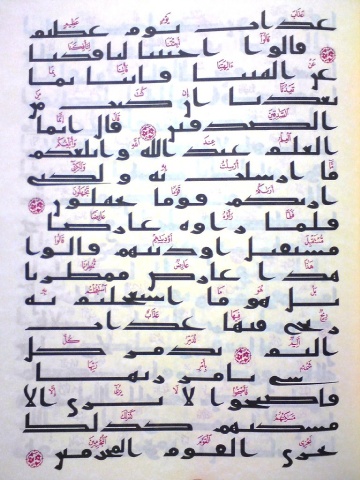 عذاب يوم عظيم
قالوا اجئتنا لتافكنا
عن الهتنا فاتنا بما
تعدنا ان كنت من
الصدقين قال انما
العلم عند الله وابلغكم
ما ارسلت به ولكني
اريكم قوما تجهلون
فلما راوه عارضا
مستقبل اوديتهم قالوا
هذا عارض ممطرنا
بل هو ما استعجلتم به
ريح فيها عذاب
اليم تدمر كل
شي بامر ربها
فاصبحوا لا يرى الا
مسكنهم كذلك
نجزي القوم المجرمين